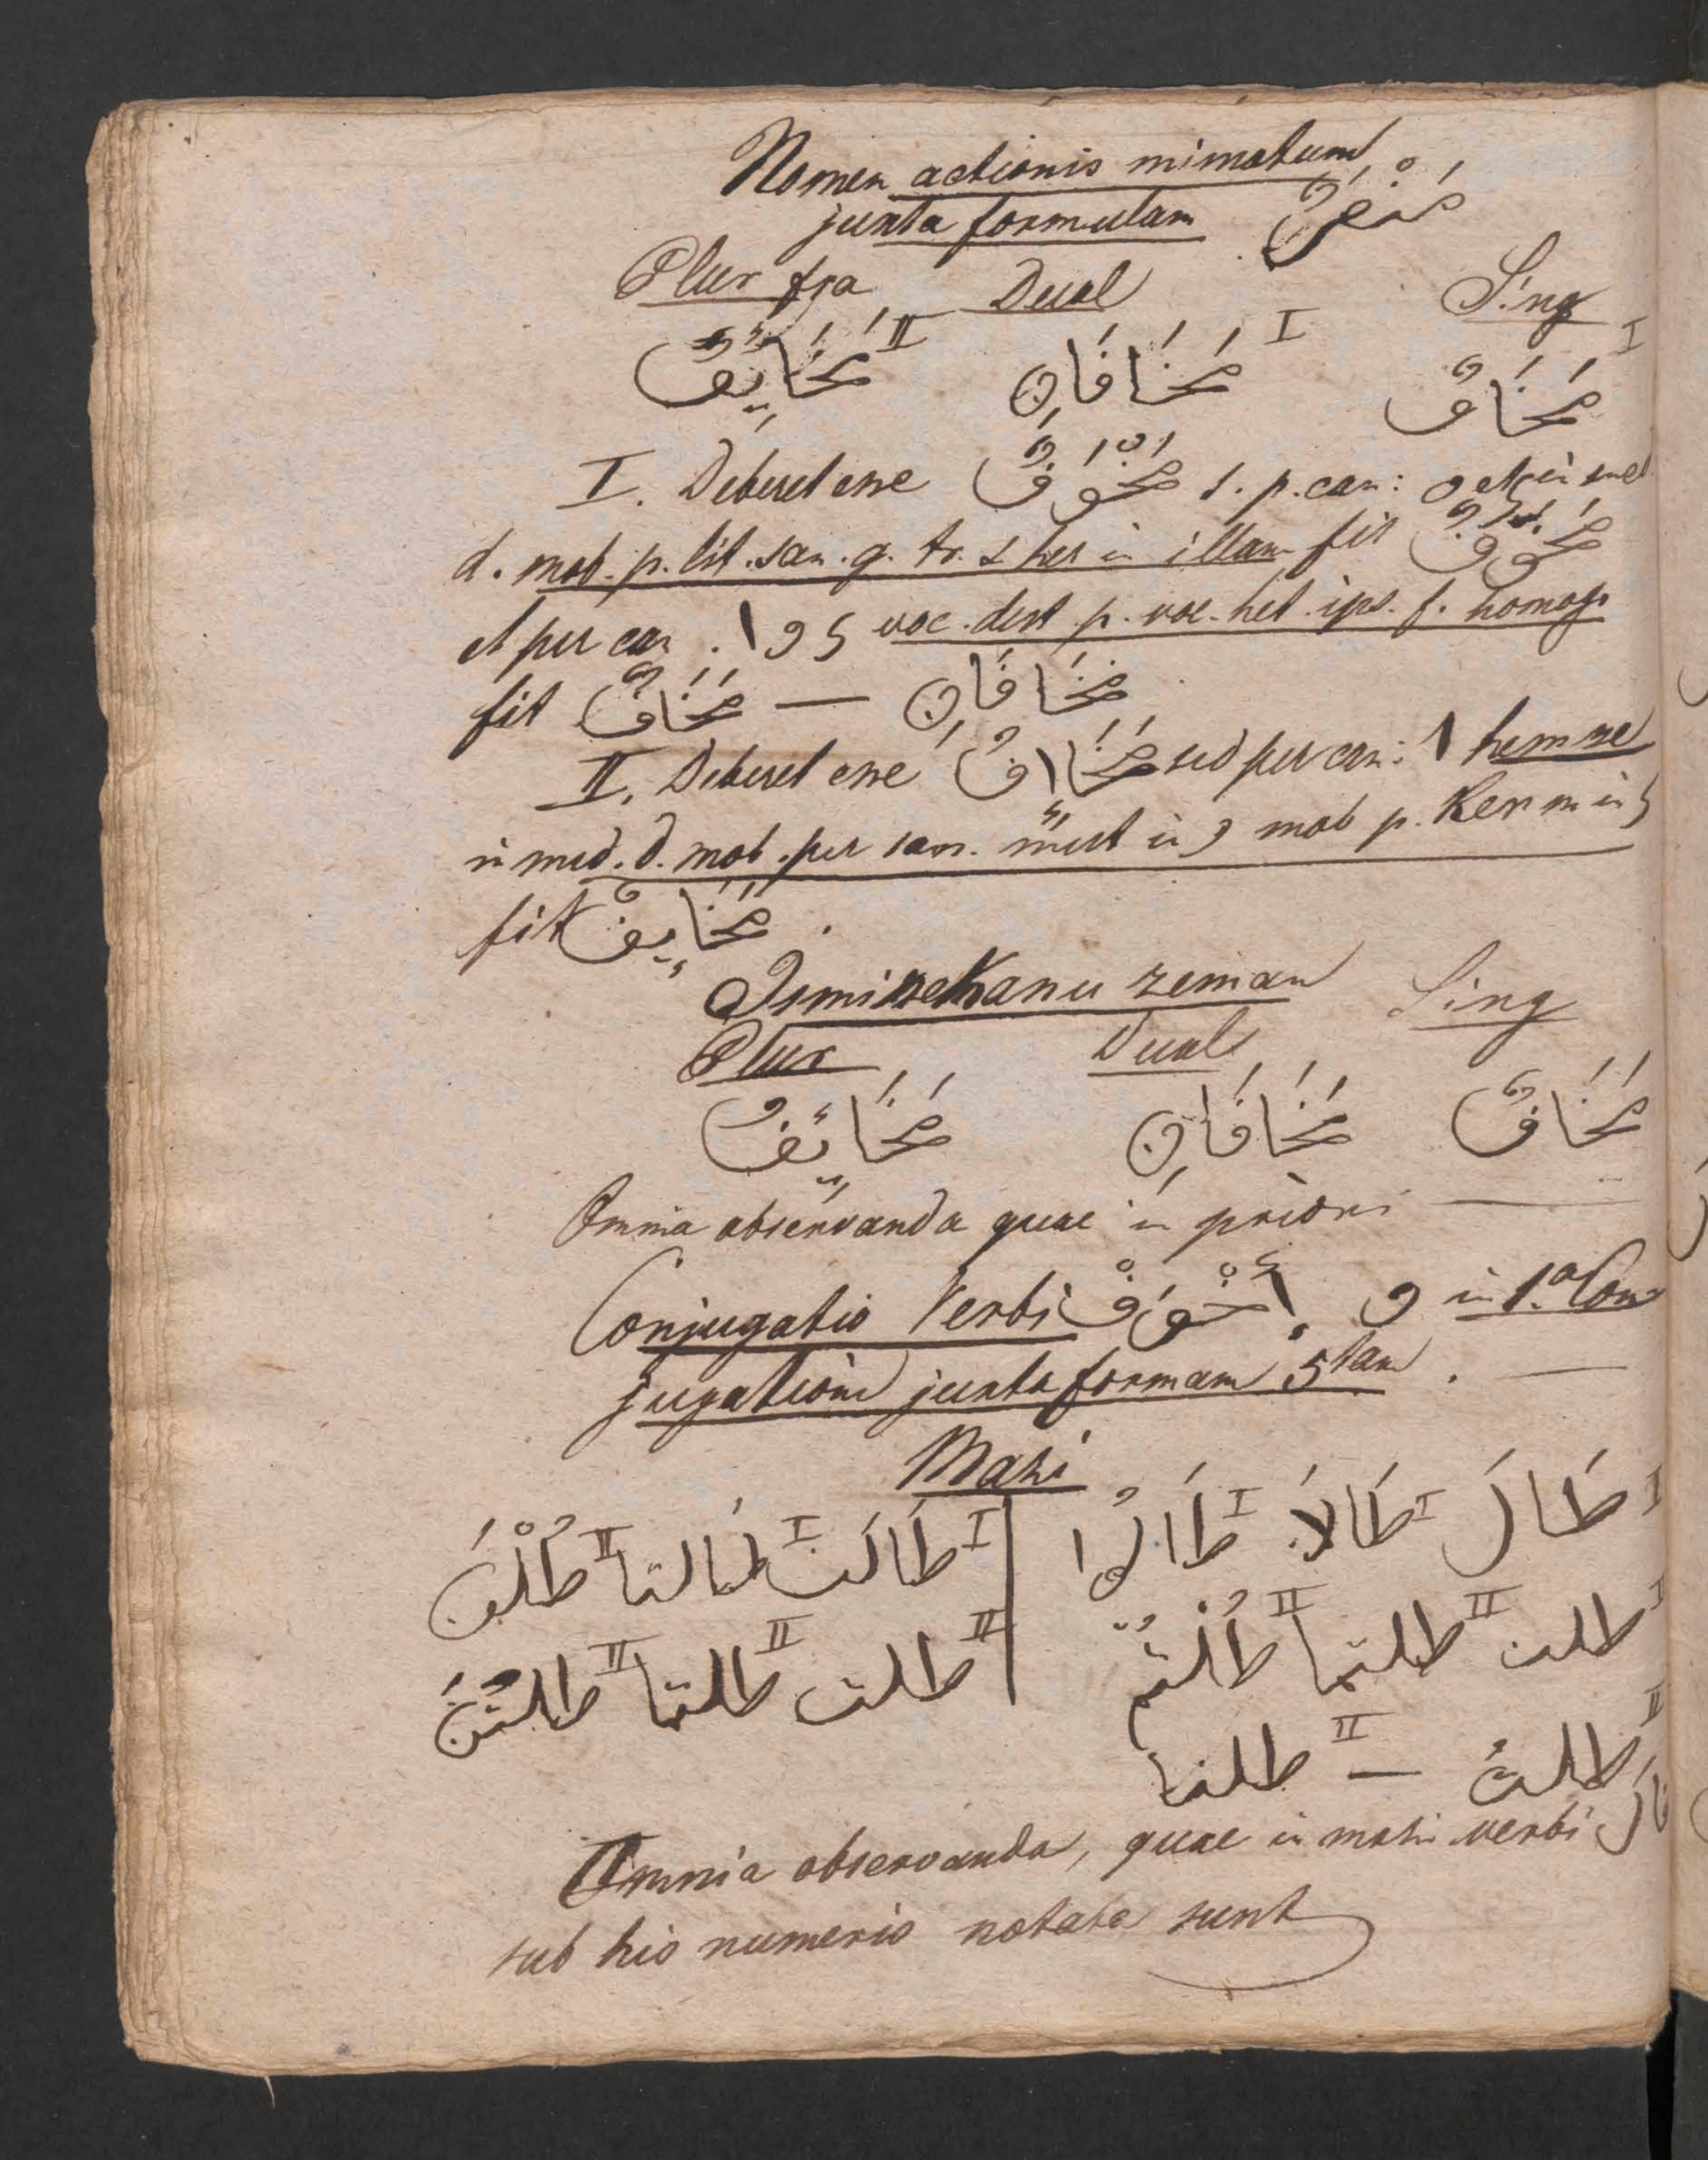 Nomen actionis mimatum
juxta formulam مَنْصَرٌ
Plur fra Dual Sing
مَخَايِفٌ II مَخَافَانِ I مَخَافٌ I
I. Deberet esse مَخْوَفٌ s. p. can: و et ي in med
d. mob. p. lit. san. q. tr. s het in illam fit مَخَوْفٌ
et per can . ا و ى voc. dest p. voc. het. ips. f. homog.
fit مَخَافٌ — مَخَافَانِ
II. Deberet esse مَخَااِفُ sed per can: ا hemze
in med. d. mob. per san. mut in و mob p. Kesrm in ى
fit مَخَايِفُ .
Ismi mekanu zeman Sing
Plur Dual
مَخَائِفُ مَخَافَانِ مَخَافٌ
Omnia observanda quae in priori —
Conjugatio Verbi إِخْوَفْ و in 1.a Con
jugatione juxta formam 5tam . —
Mazi
I طَالَ I طَالَا I طَالُوا | I طَالَت I طالتا II طُلْنَ
I طلت II طلتما II طُلْتُم | II طلت II طلتما II طلتُنَّ
II طلتُ — II طلنا
Omnia observanda, quae in mazi verbi قال
sub his numeris notata sunt